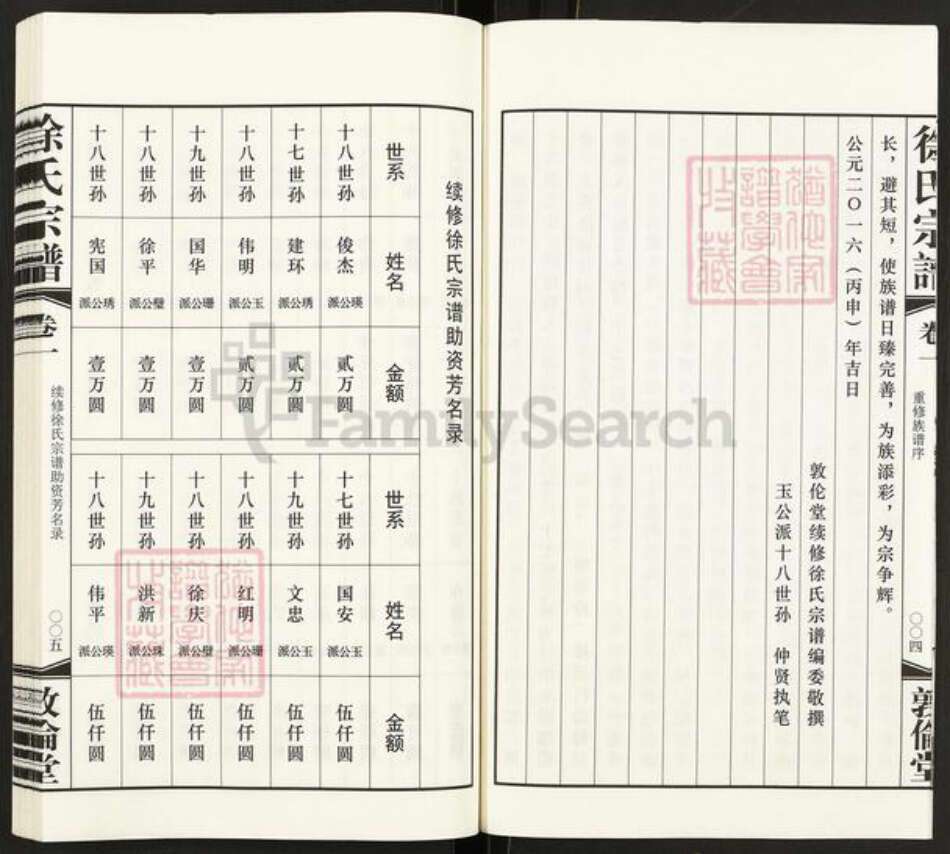 徐氏宗谱
卷一
重修族谱序
〇〇四
敦倫堂
长，避其短，使族谱日臻完善，为族添彩，为宗争辉。
公元二〇一六（丙申）年吉日
敦伦堂续修徐氏宗谱编委敬撰
玉公派十八世孙 仲贤执笔
续修徐氏宗谱助资芳名录
世系 姓名 金额
十八世孙 俊杰 派公瑛 贰万圆
十七世孙 建环 派公琇 贰万圆
十八世孙 伟明 派公玉 贰万圆
十九世孙 国华 派公珊 壹万圆
十八世孙 徐平 派公璧 壹万圆
十八世孙 宪国 派公琇 壹万圆
世系 姓名 金额
十七世孙 国安 派公玉 伍仟圆
十九世孙 文忠 派公玉 伍仟圆
十八世孙 红明 派公珊 伍仟圆
十八世孙 徐庆 派公璧 伍仟圆
十九世孙 洪新 派公珠 伍仟圆
十八世孙 伟平 派公瑛 伍仟圆
徐氏宗谱
卷一
续修徐氏宗谱助资芳名录
〇〇五
敦倫堂
FamilySearch